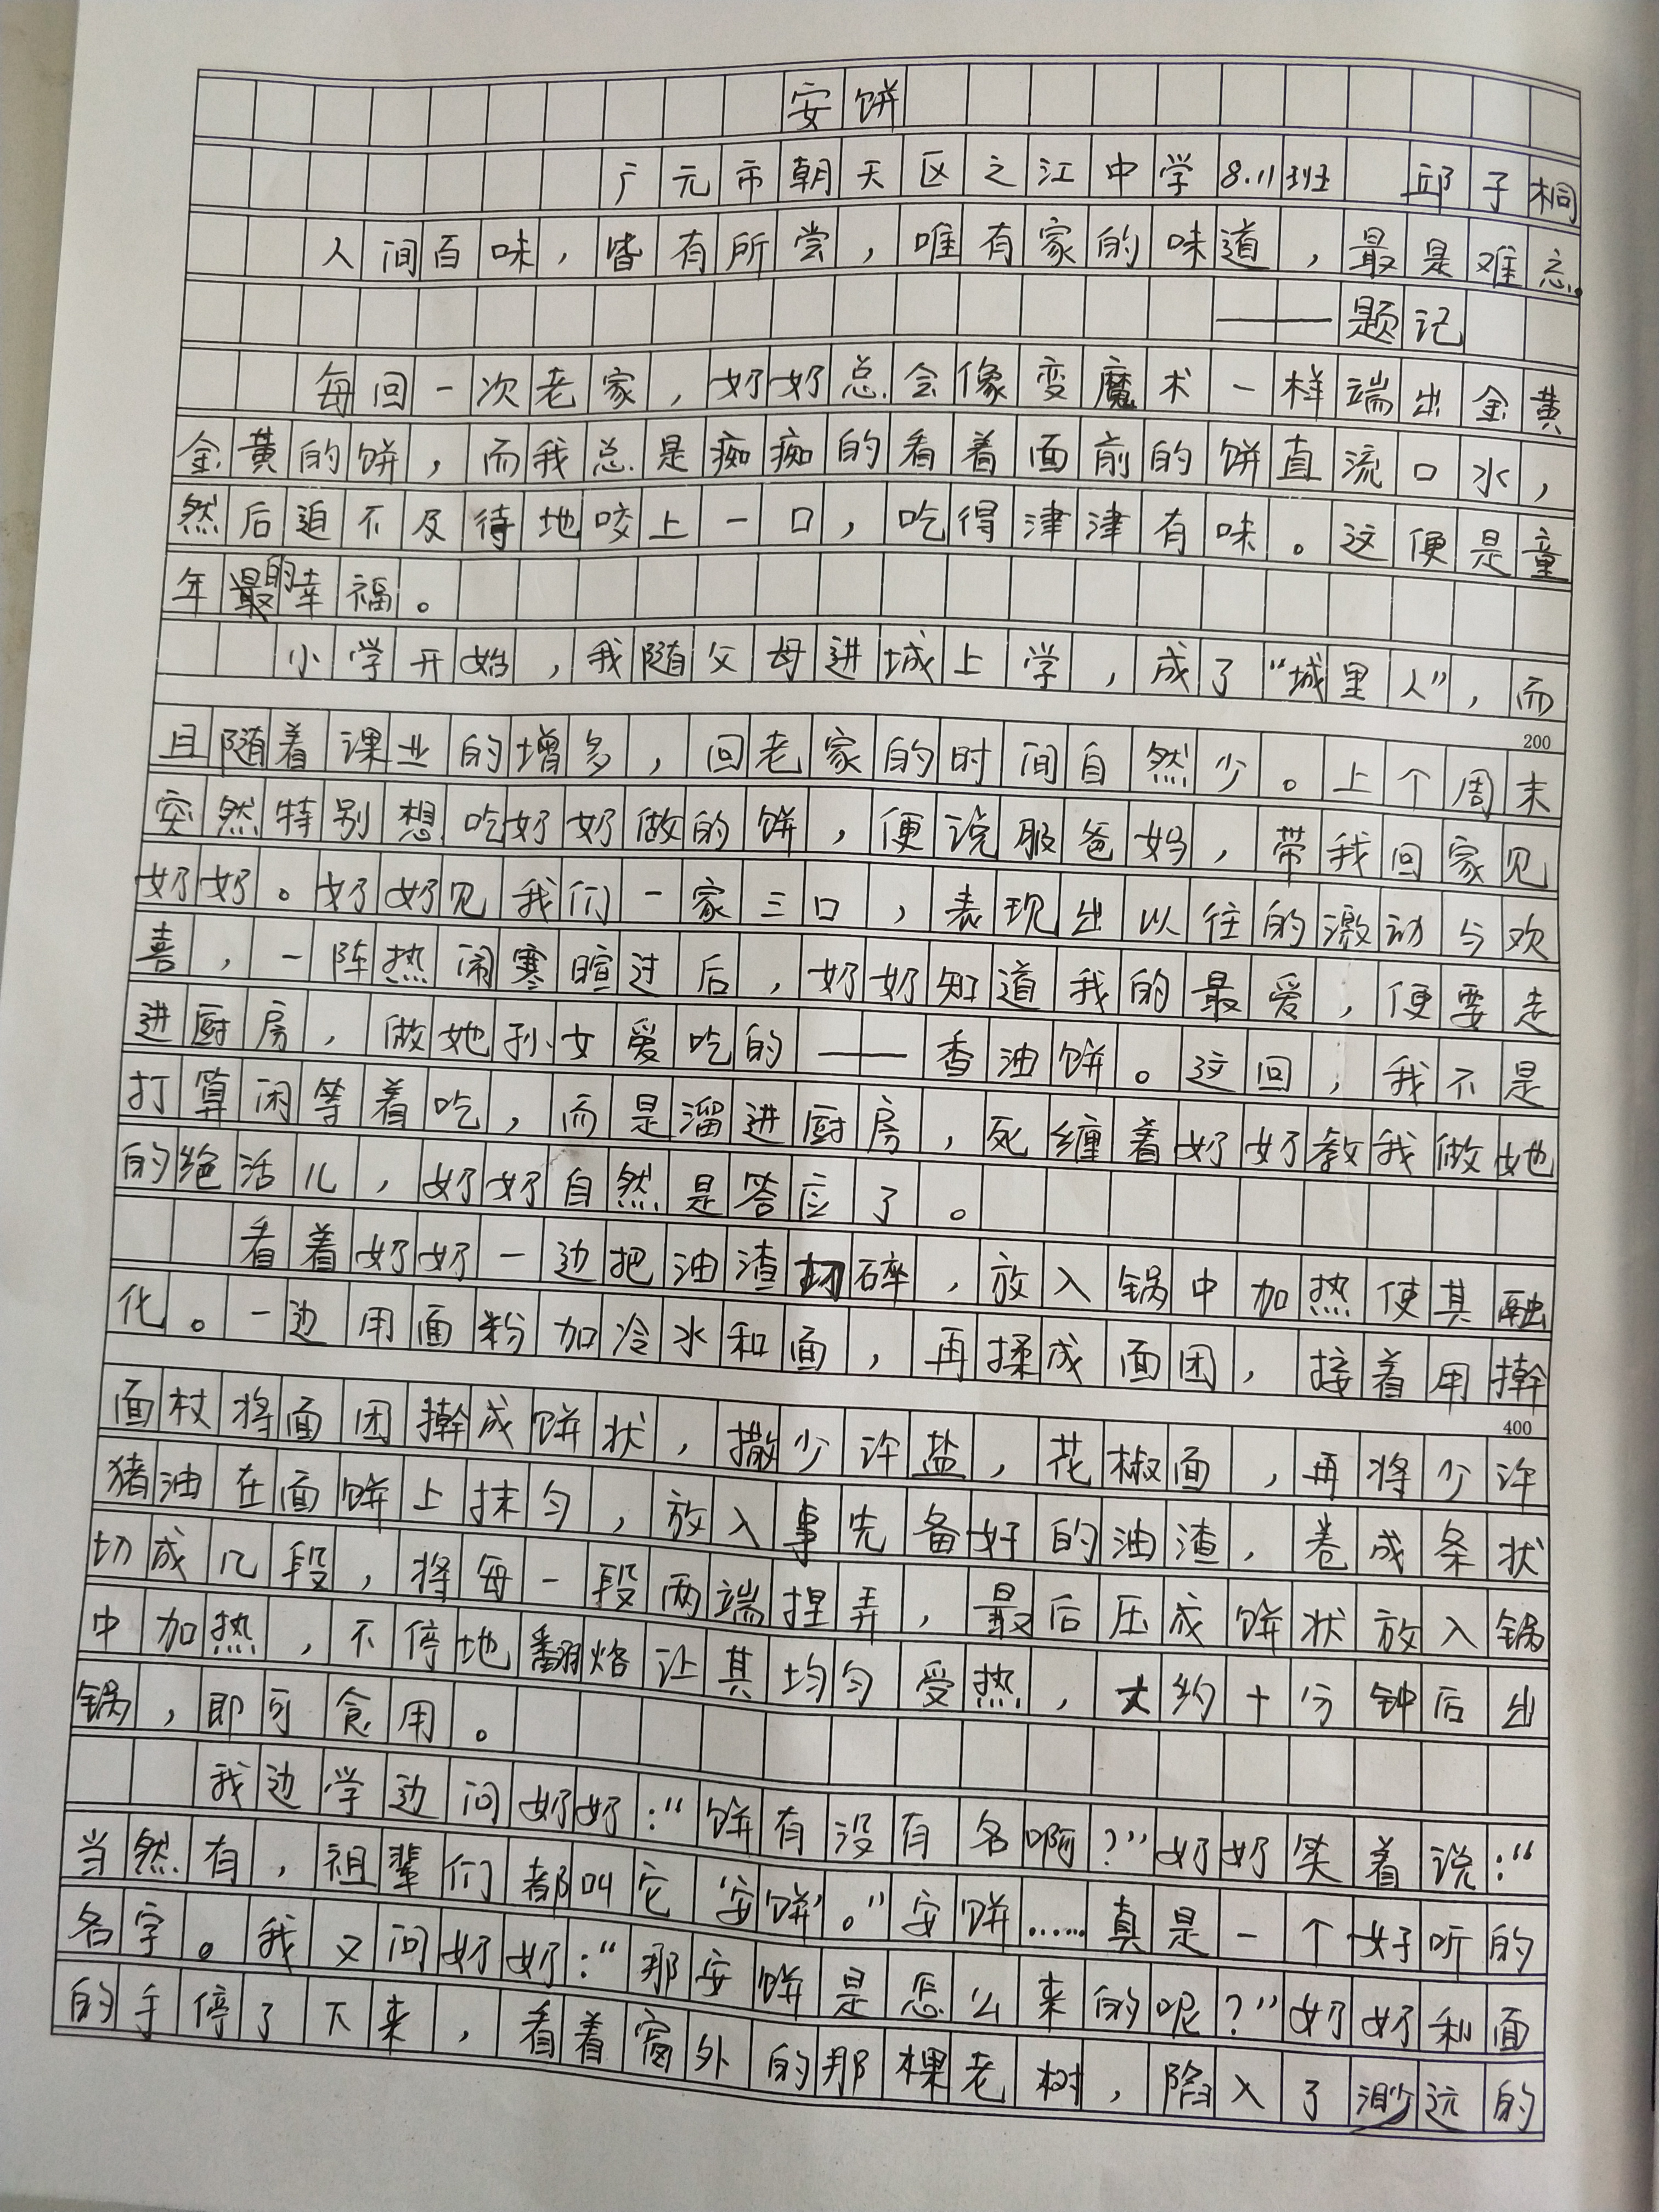 安饼
广元市朝天区之江中学8.11班 邱子桐
人间百味，皆有所尝，唯有家的味道，最是难忘。
——题记
每回一次老家，奶奶总会像变魔术一样端出金黄
金黄的饼，而我总是痴痴的看着面前的饼直流口水，
然后迫不及待地咬上一口，吃得津津有味。这便是童
年最的幸福。
小学开始，我随父母进城上学，成了“城里人”，而
200
且随着课业的增多，回老家的时间自然少。上个周末
突然特别想吃奶奶做的饼，便说服爸妈，带我回家见
奶奶。奶奶见我们一家三口，表现出以往的激动与欢
喜，一阵热闹寒暄过后，奶奶知道我的最爱，便要走
进厨房，做她孙女爱吃的——香油饼。这回，我不是
打算闲等着吃，而是溜进厨房，死缠着奶奶教我做她
的绝活儿，奶奶自然是答应了。
看着奶奶一边把油渣切碎，放入锅中加热使其融
化。一边用面粉加冷水和面，再揉成面团，接着用擀
400
面杖将面团擀成饼状，撒少许盐，花椒面，再将少许
猪油在面饼上抹匀，放入事先备好的油渣，卷成条状
切成几段，将每一段两端捏弄，最后压成饼状放入锅
中加热，不停地翻烙让其均匀受热，大约十分钟后出
锅，即可食用。
我边学边问奶奶：“饼有没有名啊？”奶奶笑着说：“
当然有，祖辈们都叫它‘安饼’。”安饼……真是一个好听的
名字。我又问奶奶：“那安饼是怎么来的呢？”奶奶和面
的手停了下来，看着窗外的那棵老树，陷入了渺远的